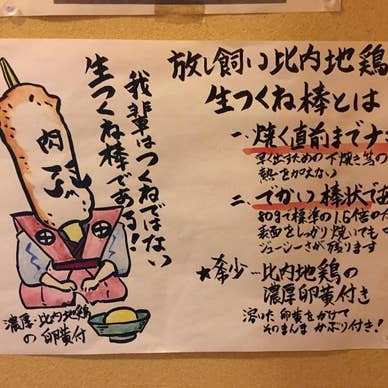 放し飼い比内地鶏
生つくね棒とは
一、焼く直前までナ
早く出すための下焼き等の
熱を加えない
二、でかい棒状では
80gで標準の1.6倍の
表面をしっかり焼いても
ジューシーさが残ります
★希少…比内地鶏の
濃厚卵黄付き
溶いた卵黄をかけて
そのまんまかぶり付き!
我輩はつくねではない
生つくね棒である!
肉
濃厚・比内地鶏
の卵黄付